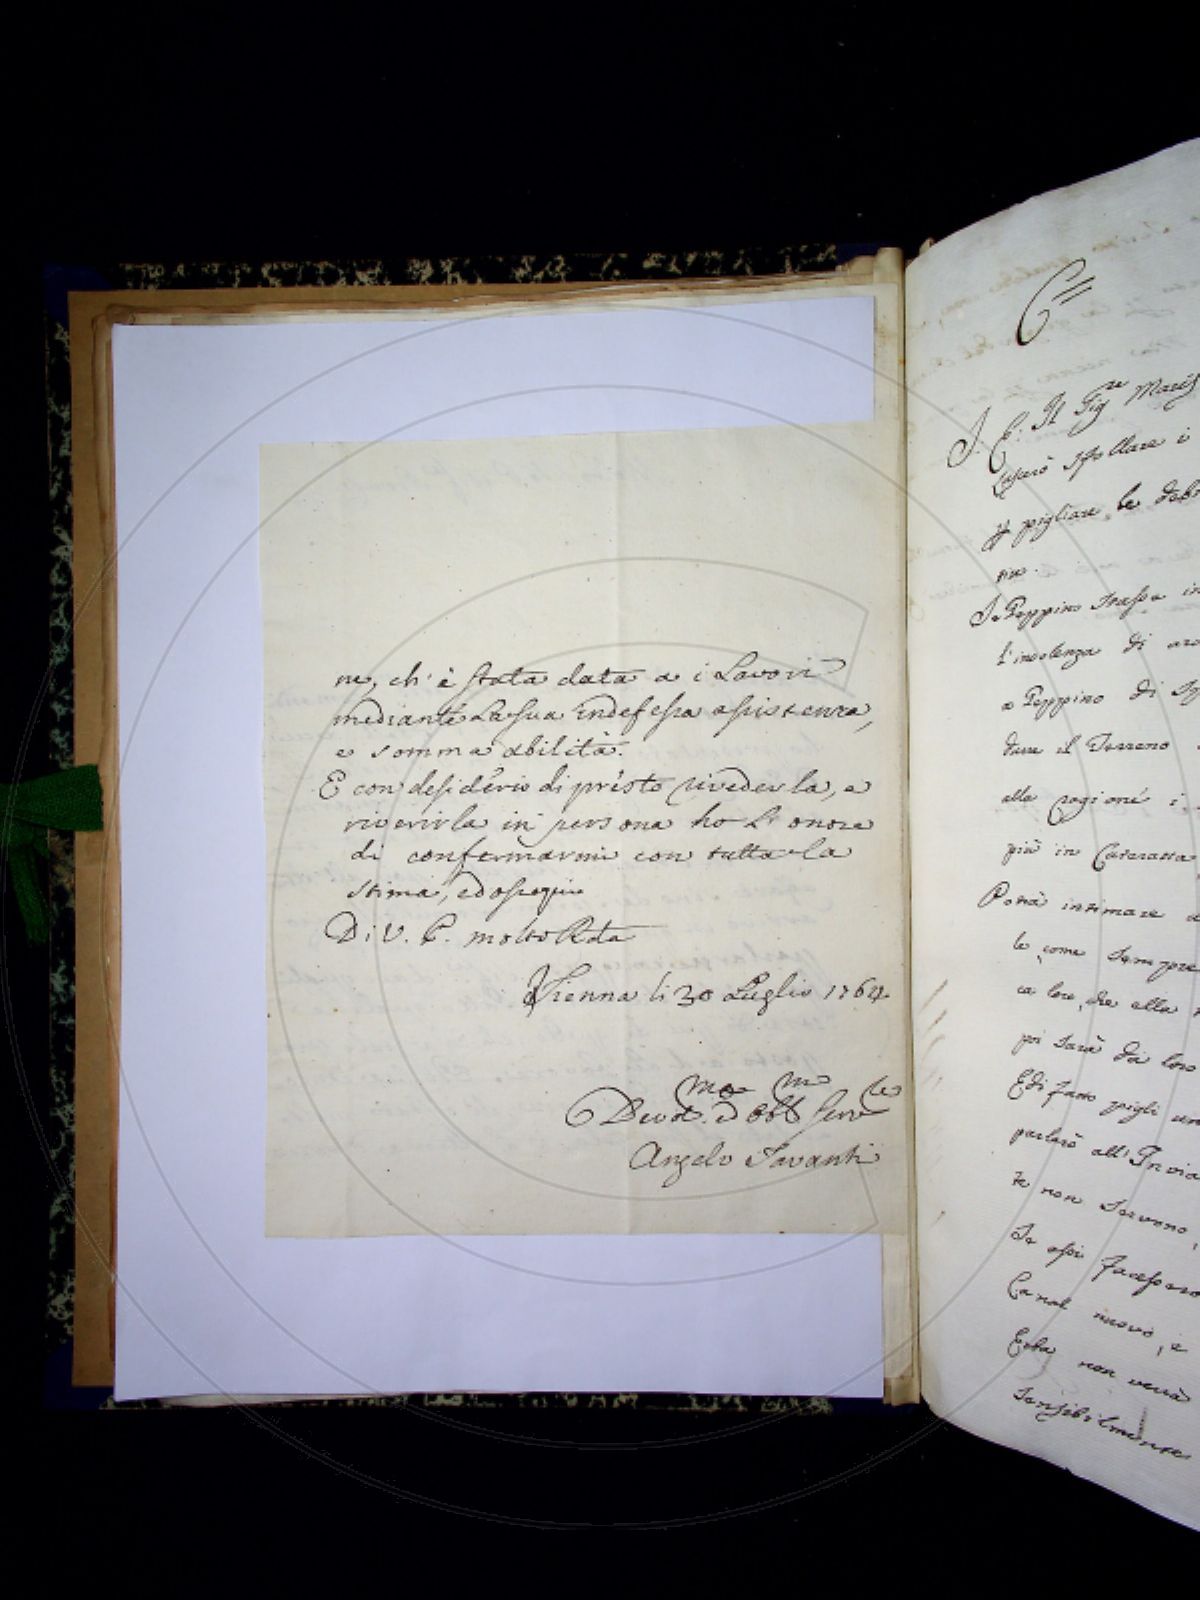 ne, ch' è stata data a i Lavori
mediante La sua indefessa assistenza,
e somma abilità.
E con desiderio di presto rivederla, e
riverirla in persona ho L' onore
di confermarmi con tutta la
stima, ed ossequio
Di V. P. molto Rda
Vienna li 30 Luglio 1764
Devot.mo ed Obb.mo Serv.le
Angelo Tavanti
6
S. E. Il Sig.re March
Lasciò
pigliare le
Se Peppino
l'insolenza di
a Peppino di
dare il Terreno
alla ragione i
più in
Potrà intimare
le come sempre
ca loro, che alla
poi sarà da loro
Edi fatto pigli un
parlerò all' Invia
te non servono,
Se essi facessero
Canal nuovo, e
Erba non verrà
sensibilmente